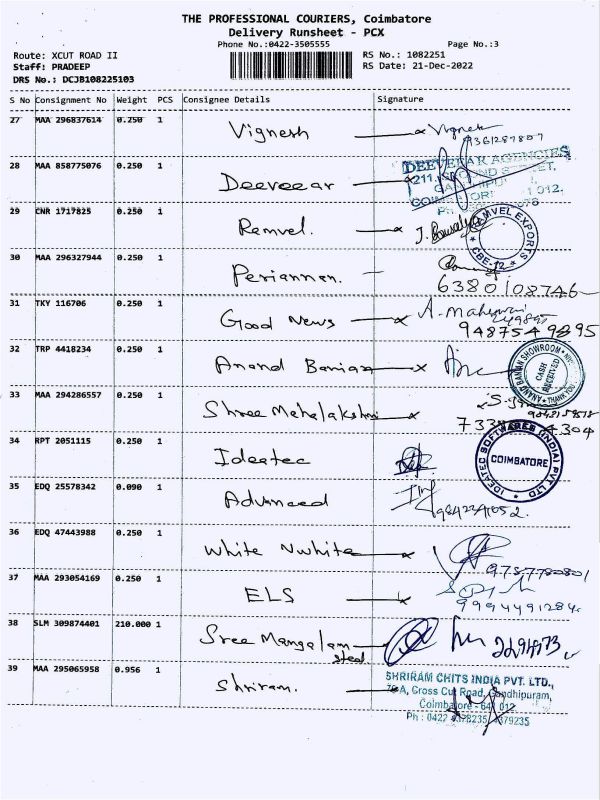 THE PROFESSIONAL COURIERS, Coimbatore
Delivery Runsheet - PCX
Phone No.:0422-3505555 Page No.:3
Route: XCUT ROAD II RS No.: 1082251
Staff: PRADEEP RS Date: 21-Dec-2022
DRS No.: DCJB108225103
S No Consignment No Weight PCS Consignee Details Signature
27 MAA 296837614 0.250 1 Vignesh Vignesh
9361287807
28 MAA 858775076 0.250 1 Deeveear DEEVEEAR AGENCIES
29 CNR 1717825 0.250 1 Ramvel. RAMVEL EXPORTS
CBE-12
30 MAA 296327944 0.250 1 Periannan.
6380108746
31 TKY 116706 0.250 1 Good News A. Maheswari
9487549895
32 TRP 4418234 0.250 1 Anand Banian ANAND BANIAN SHOWROOM
CASH RECEIVED
THANK YOU
33 MAA 294286557 0.250 1 Shree Mahalakshmi
34 RPT 2051115 0.250 1 Ideatec IDEATEC SOFTWARES (INDIA) PVT LTD
COIMBATORE
35 EDQ 25578342 0.090 1 Advanced
36 EDQ 47443988 0.250 1 White N White
9787780801
37 MAA 293054169 0.250 1 ELS
9994491284
38 SLM 309874401 210.000 1 Sree Mangalam
steel
39 MAA 295065958 0.956 1 Shriram. SHRIRAM CHITS INDIA PVT. LTD.,
Cross Cut Road, Gandhipuram,
Coimbatore - 641 012
Ph : 0422 4378235, 4379235